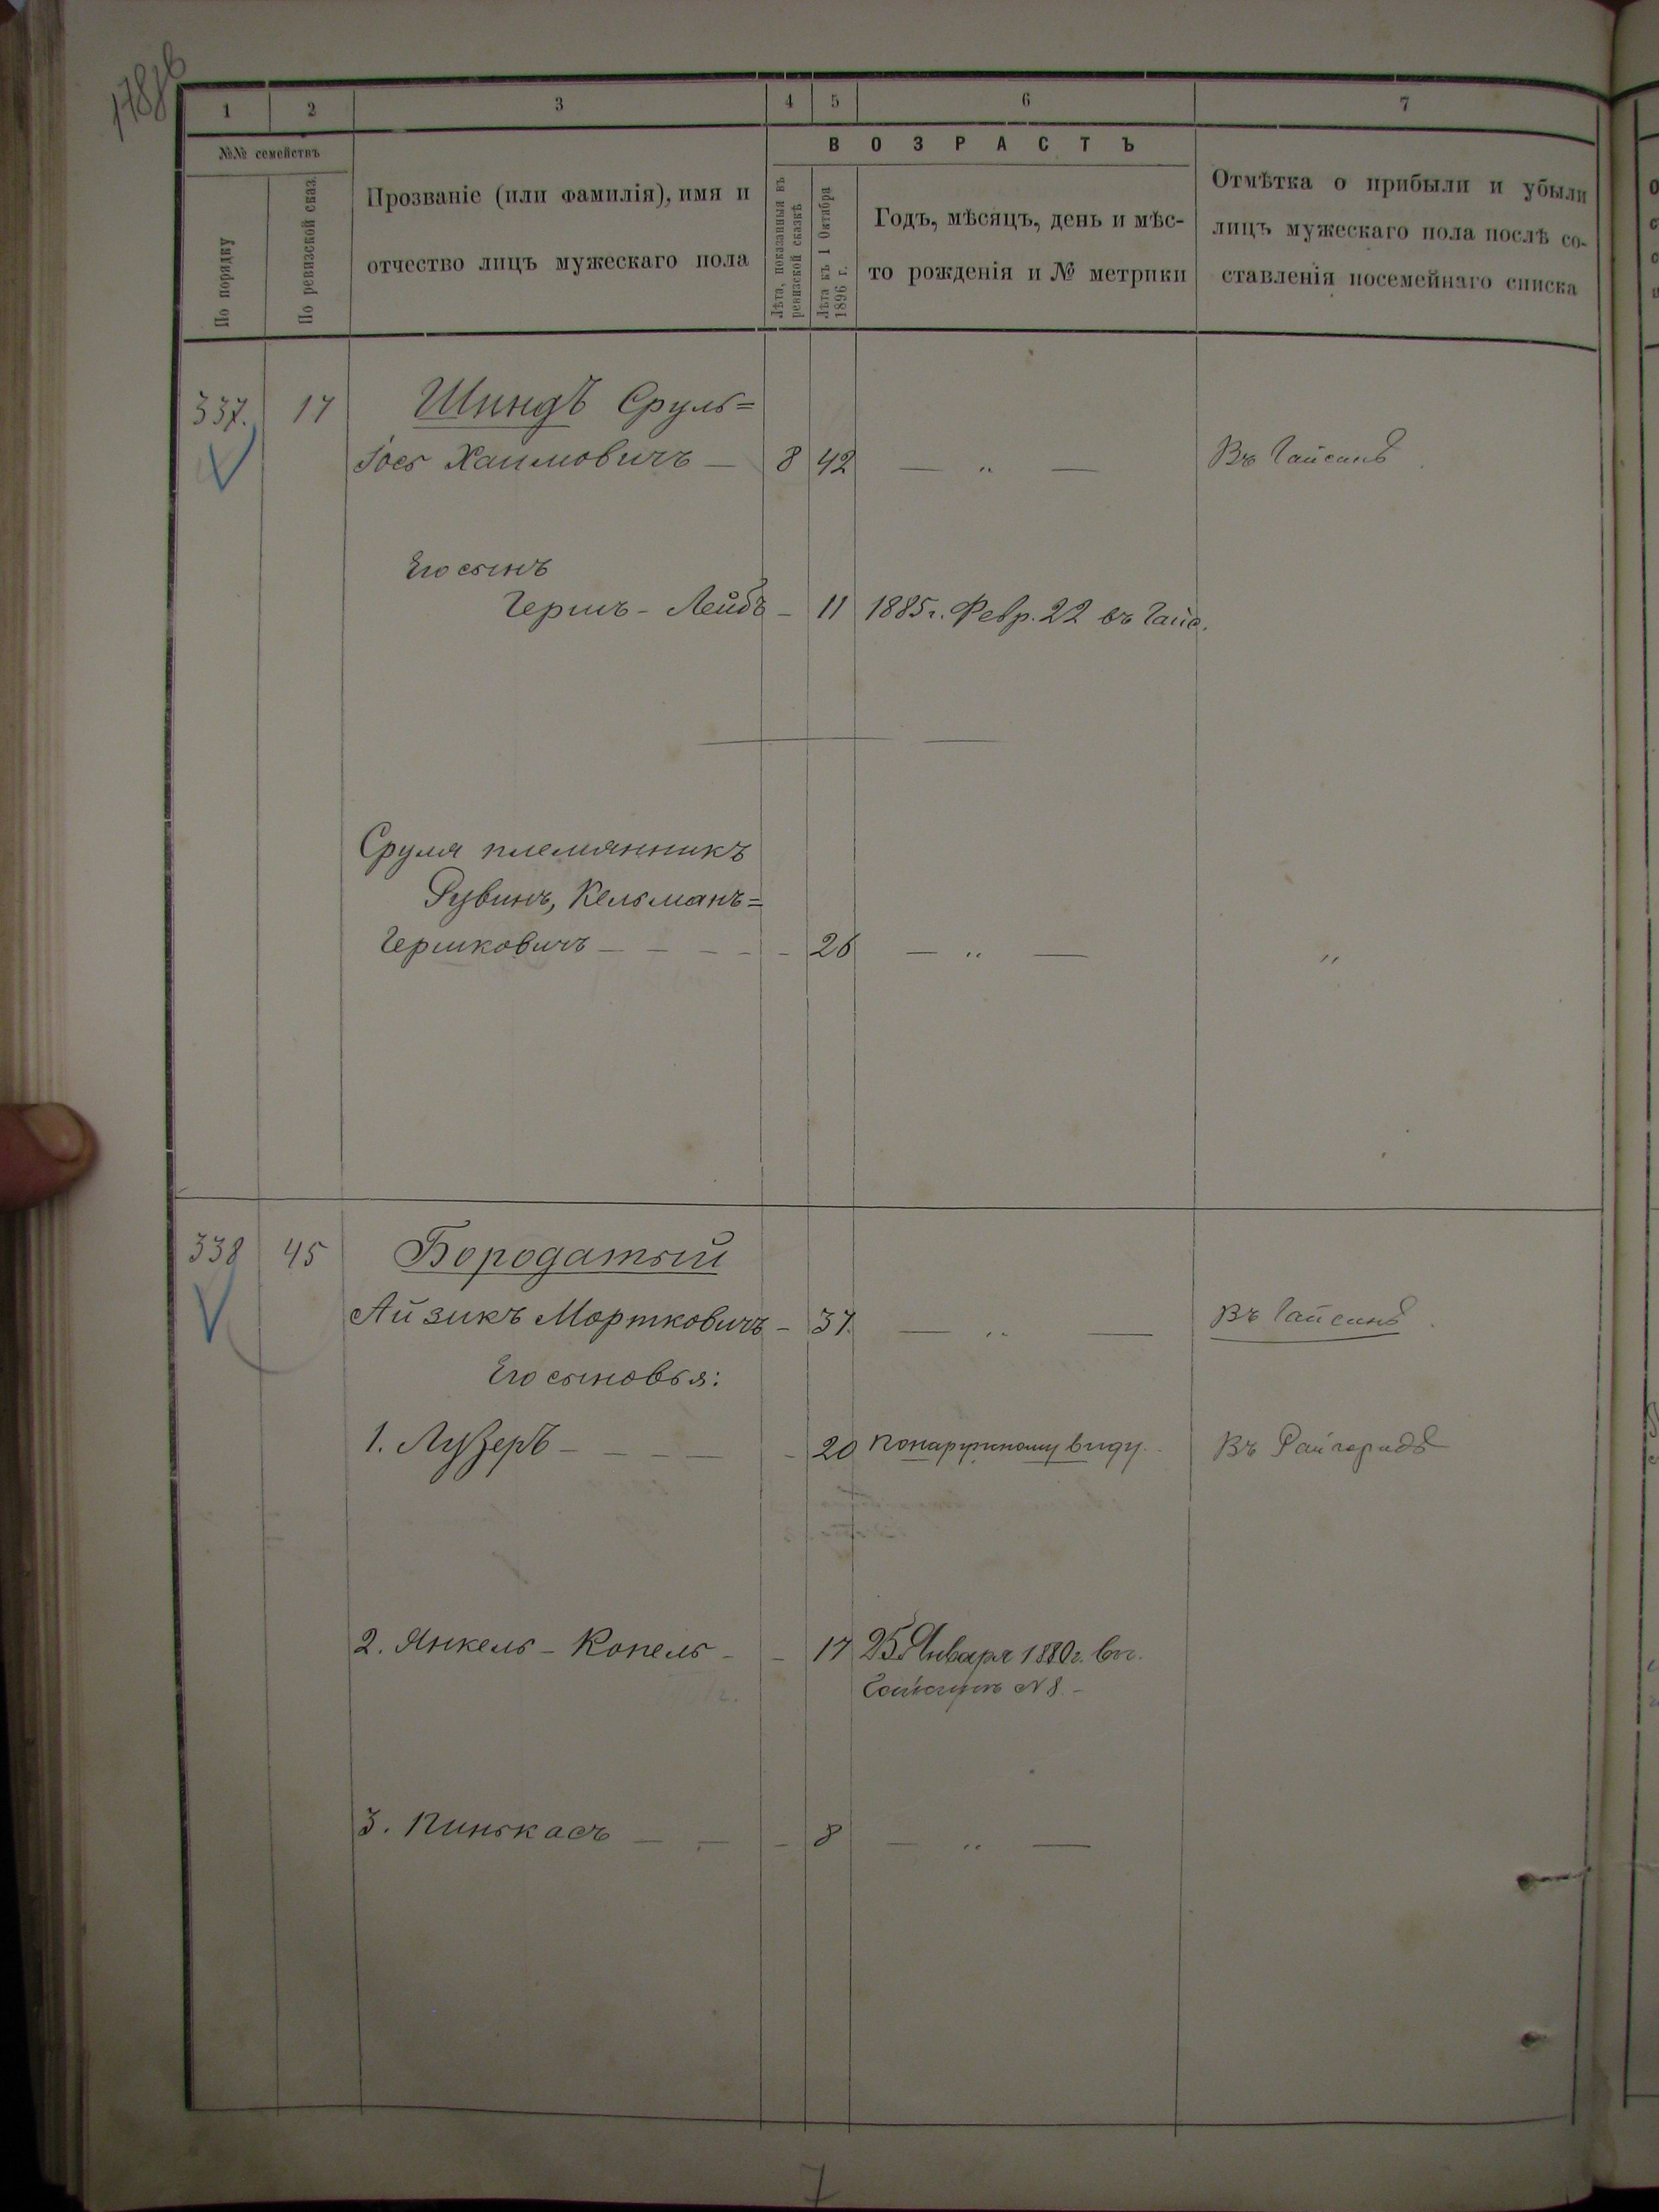 1 2 3 4 5 6 7
№№ семействъ
По порядку
По ревизской сказ.
Прозваніе (или фамилія), имя и
отчество лицъ мужескаго пола
ВОЗРАСТЪ
Лѣта, показанныя въ
ревизской сказкѣ
Лѣта къ 1 Октября
1896 г.
Годъ, мѣсяцъ, день и мѣс-
то рожденія и № метрики
Отмѣтка о прибыли и убыли
лицъ мужескаго пола послѣ со-
ставленія посемейнаго списка
337. 17 Шнндъ Сруль=
Іось Хаимовичъ — 8 42 — „ — Въ Гайсинѣ
Его сынъ
Гершъ - Лейбъ - 11 1885 г. Февр. 22 въ Гайс.
Сруля племянникъ
Рувинъ, Кельманъ=
Гершковичъ — — — - - 26 — „ — „
338 45 Бородатый
Айзикъ Мортковичъ - 37. — „ — Въ Гайсинѣ
Его сыновья:
1. Лузеръ - — — — - 20 По наружному виду. Въ Райгородѣ
2. Янкель - Копель - - 17 25 Января 1880 г. въ г.
Гайсинъ № 8. -
3. Пинькасъ — — - 8 — „ —
7